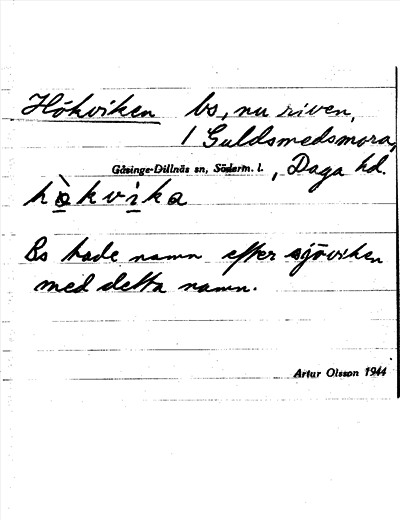 Hökviken bs, nu riven,
/ Guldsmedsmora,
Gåsinge-Dillnäs sn, Söderm. l., Daga hd.
hø̀kvika
Bs hade namn efter sjöviken
med detta namn.
Artur Olsson 1944